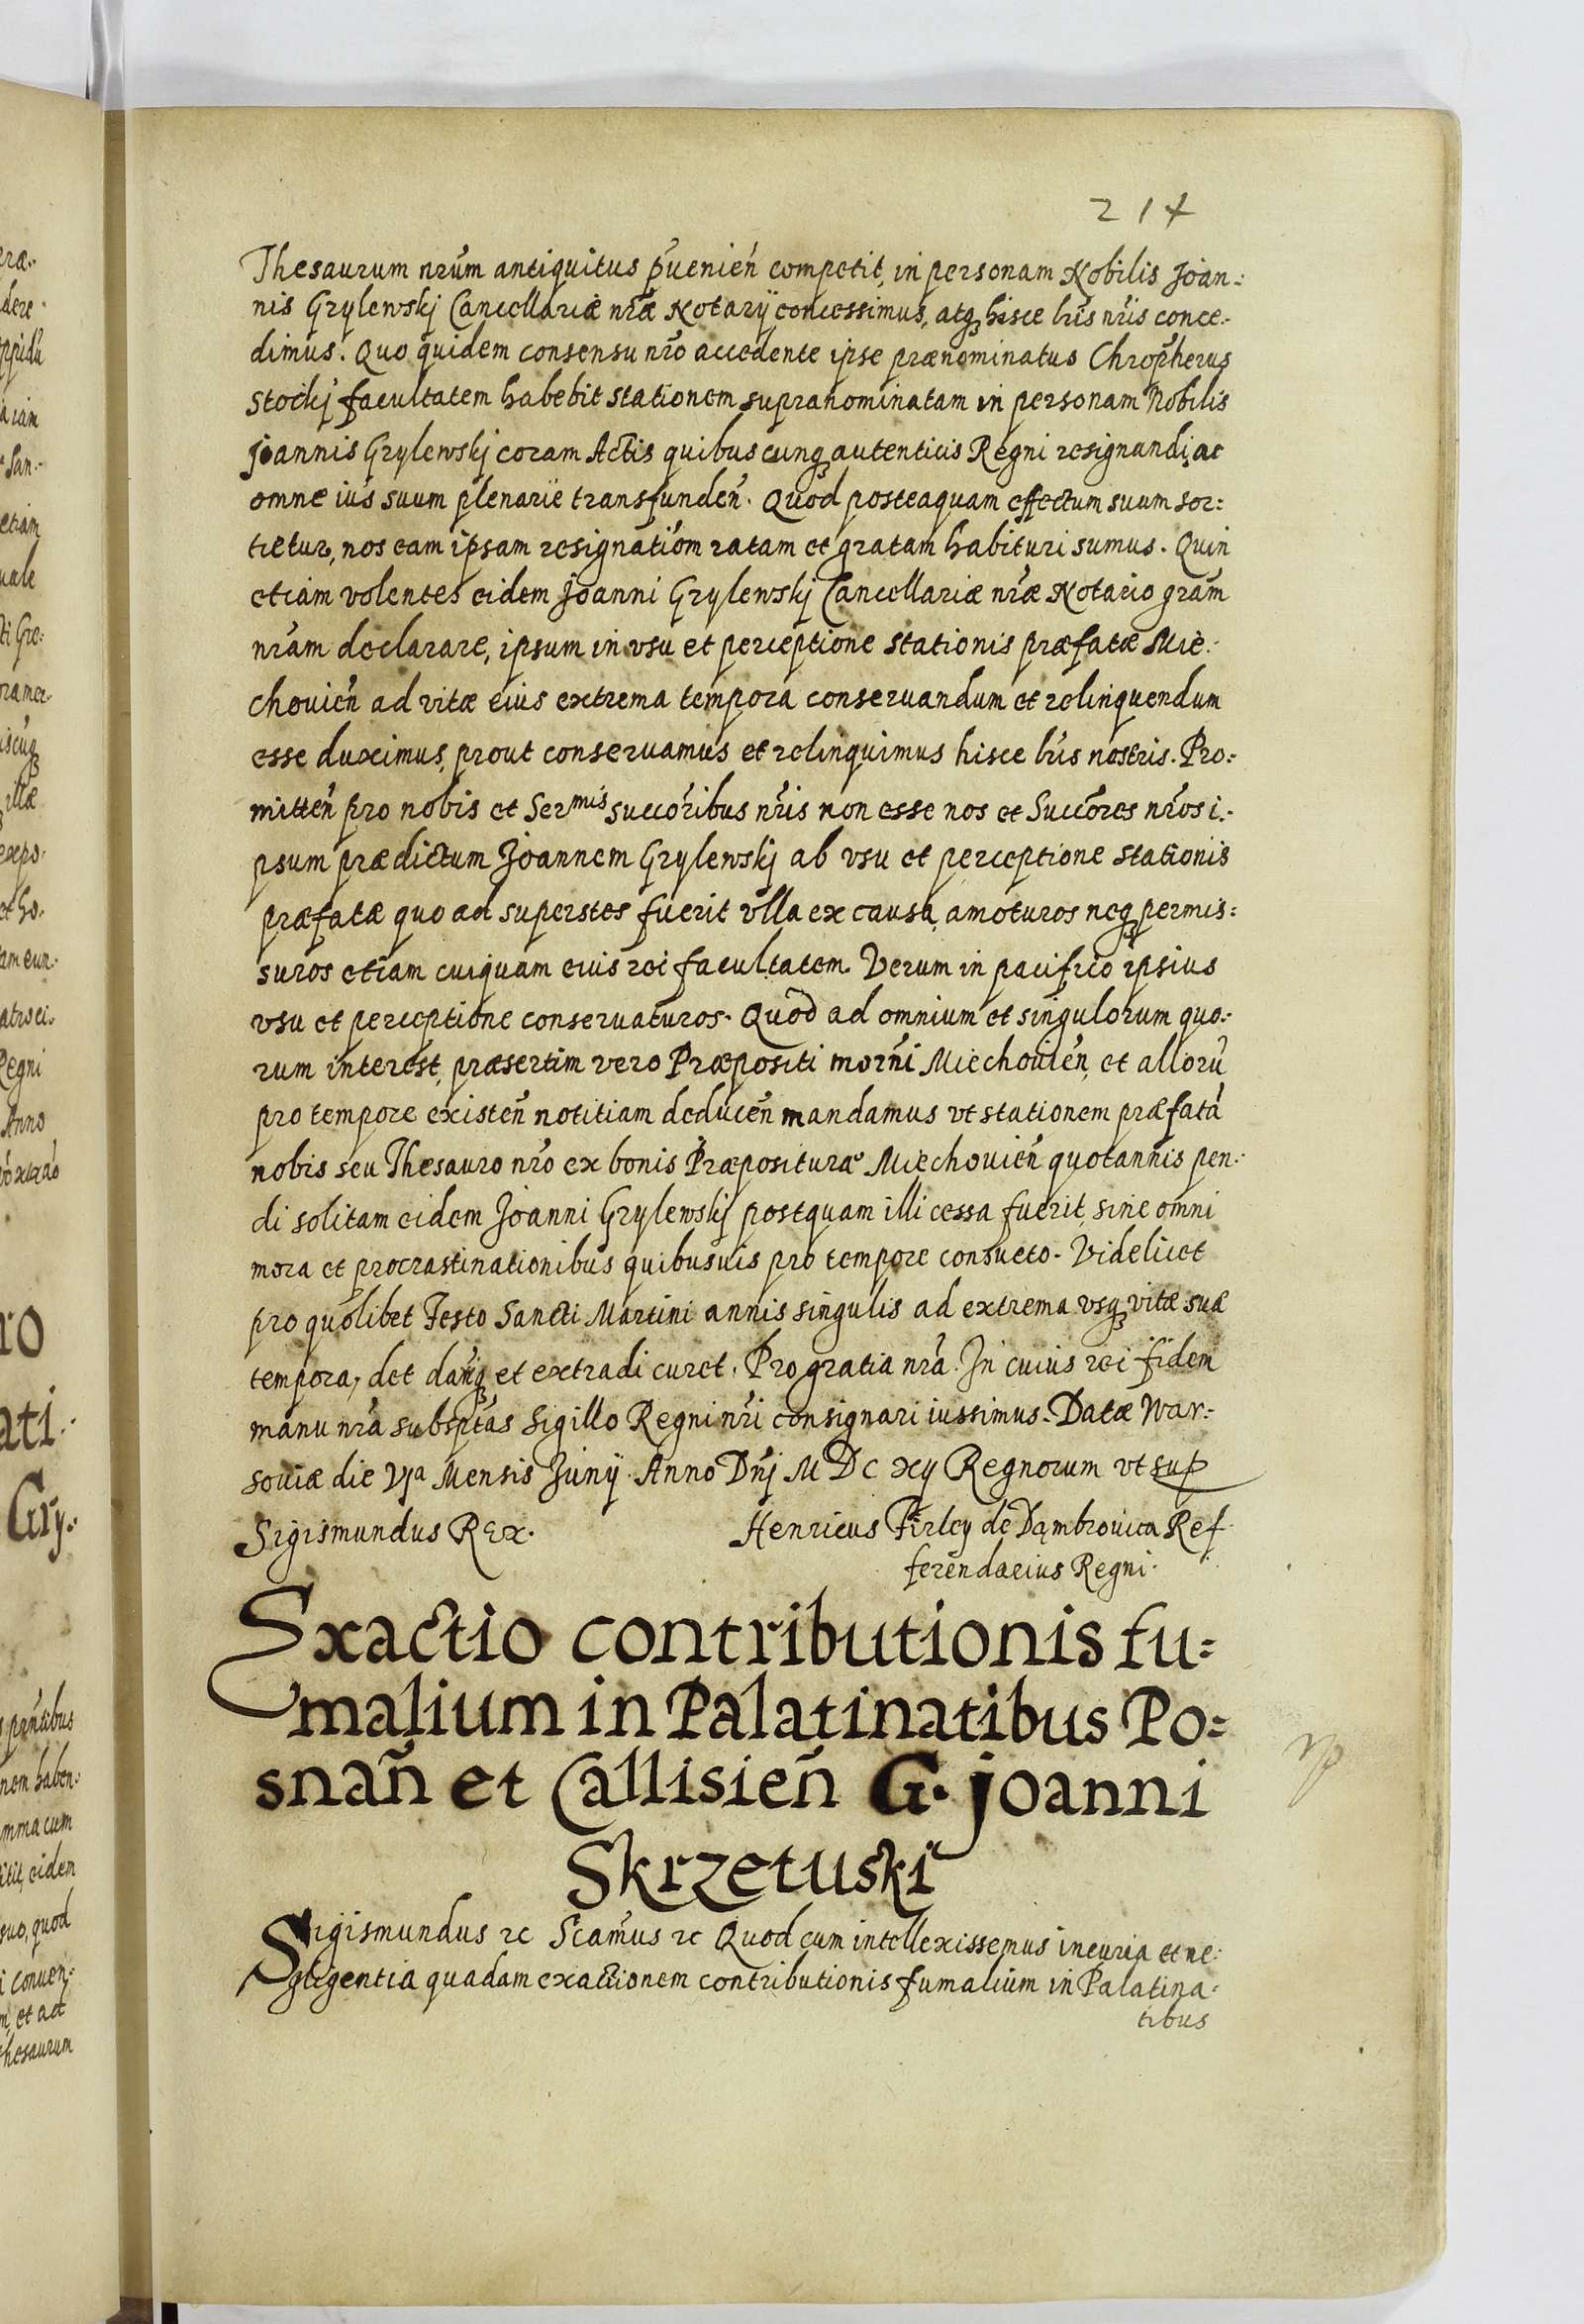 214
Thesaurum nrũm antiquitus p̃uenień competit, in personam Nobilis Joan:
nis Grylewskj Cancellariæ nræ̃ Notarÿ concessimus, atqꝫ hisce lr̃is nr̃is conce.
dimus. Quo quidem consensu nrõ accedente ipse prænominatus Chrop̃herus
Stockj facultatem habebit stationem supranominatam in personam Nobilis
Joannis Grylewskj coram Actis quibuscunqꝫ autenticis Regni resignandi, ac
omne ius suum plenarie transfundeñ. Quod posteaquam effectum suum sor:
tietur, nos eam ipsam resignatiõm ratam et gratam habituri sumus. Quin
etiam volentes eidem Joanni Grylewskj Cancellariæ nræ̃ Notario grãm
nrãm declarare, ipsum in vsu et perceptione stationis præfatæ Mie:
chovień ad vitæ eius extrema tempora conseruandum et relinquendum
esse duximus, prout conseruamus et relinquimus hisce lr̃is nostris. Pro:
mitteñ pro nobis et Sermis succõribus nr̃is non esse nos et Succõres nrõs i:
psum prædictum Joannem Grylewskj ab vsu et perceptione stationis
præfatæ quo ad superstes fuerit vlla ex causa, amoturos neqꝫ permis:
suros etiam cuiquam eius rei facultatem. Verum in pacifico ipsius
vsu et perceptione conseruaturos. Quod ad omnium et singulorum quo:
rum interest, præsertim vero Præpositi morñi Miechovień, et alioru᷃
pro tempore existeñ notitiam deduceñ mandamus vt stationem præfatã
nobis seu Thesauro nrõ ex bonis Præposituræ Miechovień quotannis pen:
di solitam eidem Joanni Grylewskj postquam illi cessa fuerit, sine omni
mora et procrastinationibus quibusuis pro tempore consueto. Videlicet
pro quolibet Festo Sancti Martini annis singulis ad extrema vsqꝫ vitæ suæ
tempora, det dariqꝫ et extradi curet. Pro gratia nrã. In cuius rei fidem
manu nrã subsp̃tas Sigillo Regni nr̃i consignari iussimus. Datæ War:
soviæ die Vja Mensis Junÿ. Anno Dñj M D C xij Regnorum vt sup
Sigismundus Rex.
Henricus Firley de Dąmbrovica Ref
ferendarius Regni.
Exactio contributionis fu:
malium in Palatinatibus Po:
snañ et Callisieñ G. Joanni
Skrzetuski
Sigismundus ꝛc Scãmus ꝛc Quod cum intellexissemus incuria et ne:
gligentia quadam exactionem contributionis fumalium in Palatina:
tibus